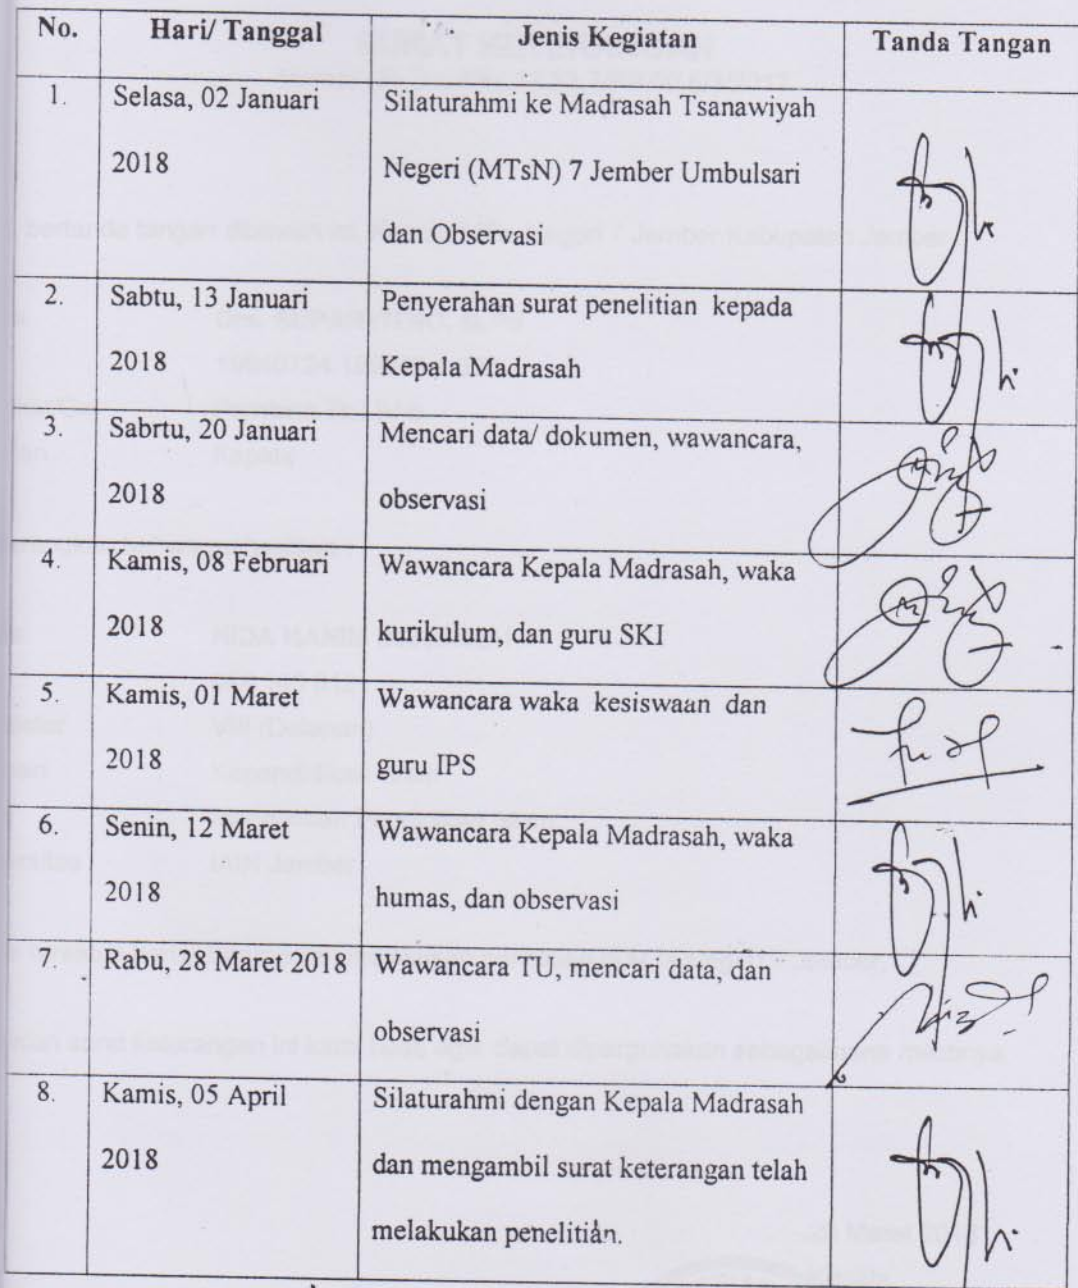 No. Hari/ Tanggal Jenis Kegiatan Tanda Tangan
1. Selasa, 02 Januari Silaturahmi ke Madrasah Tsanawiyah
2018 Negeri (MTsN) 7 Jember Umbulsari
dan Observasi
2. Sabtu, 13 Januari Penyerahan surat penelitian kepada
2018 Kepala Madrasah
3. Sabrtu, 20 Januari Mencari data/ dokumen, wawancara,
2018 observasi
4. Kamis, 08 Februari Wawancara Kepala Madrasah, waka
2018 kurikulum, dan guru SKI
5. Kamis, 01 Maret Wawancara waka kesiswaan dan
2018 guru IPS
6. Senin, 12 Maret Wawancara Kepala Madrasah, waka
2018 humas, dan observasi
7. Rabu, 28 Maret 2018 Wawancara TU, mencari data, dan
observasi
8. Kamis, 05 April Silaturahmi dengan Kepala Madrasah
2018 dan mengambil surat keterangan telah
melakukan penelitian.